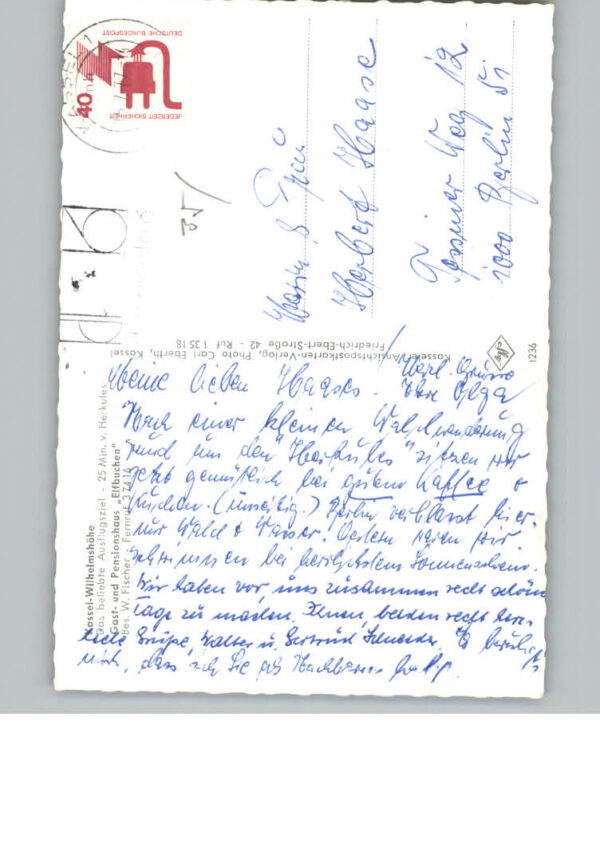 Kassel-Wilhelmshöhe
Das beliebte Ausflugsziel - 25 Min. v. Herkules
Gast- und Pensionshaus "Elfbuchen"
Bes. W. Fischer - Fernruf 37414
Kasseler Ansichtspostkarten-Verlag, Photo Carl Eberth, Kassel
Friedrich-Ebert-Straße 42 - Ruf 13518
1236
DEUTSCHE BUNDESPOST
40
JEDERZEIT SICHERHEIT
35/
Herbert Haase
Weg 12
1000 Berlin 51
Meine lieben Haases.
Nach einer kleinen Waldwanderung
rund um den "Herkules" sitzen wir
jetzt gemütlich bei gutem Kaffee +
Kuchen. Berlin verblasst hier.
nur Wald + Wasser. Gestern waren wir
Schwimmen bei herrlichstem Sonnenschein.
Wir haben vor, uns zusammen recht schöne
Tage zu machen. Ihnen beiden recht herz-
liche Grüße, Walter u. Gertrud Schneider. Es
mich, dass ich Sie als Nachbarn
Herzl. Grüsse
Ihre Olga